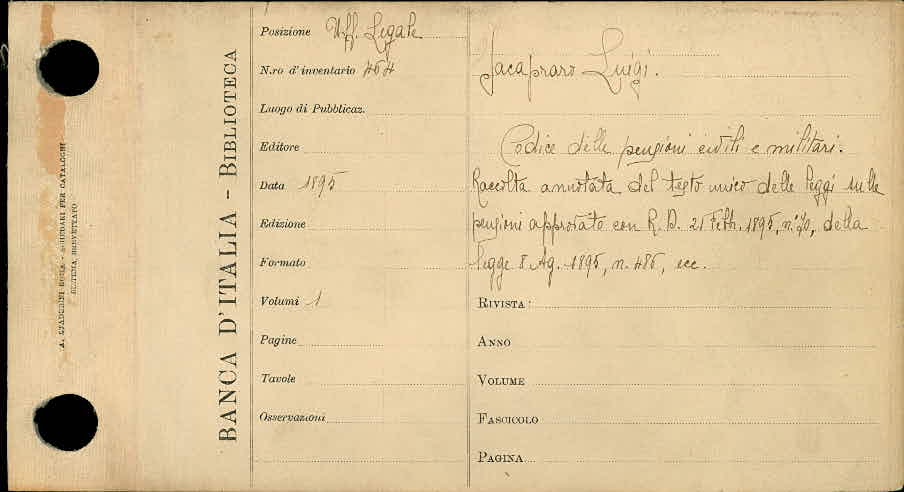 A. STADERINI ROMA - SCHEDARI PER CATALOGHI
SISTEMA BREVETTATO
BANCA D'ITALIA - BIBLIOTECA
Posizione Uff. Legale
N.ro d'inventario 464
Luogo di Pubblicaz.
Editore
Data 1895
Edizione
Formato
Volumi 1
Pagine
Tavole
Osservazioni
Jacapraro Luigi.
Codice delle pensioni civili e militari.
Raccolta annotata del testo unico delle leggi sulle
pensioni approvato con R. D. 21 Febb. 1895, n.° 70, della
legge 8 Ag. 1895, n. 486, ecc.
RIVISTA:
ANNO
VOLUME
FASCICOLO
PAGINA